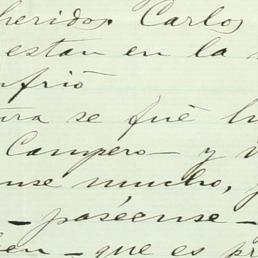 heridos. Carlos
estan en la
nfrió
ura se fué
Campero – y
nse mucho,
– paséense –
en – que es